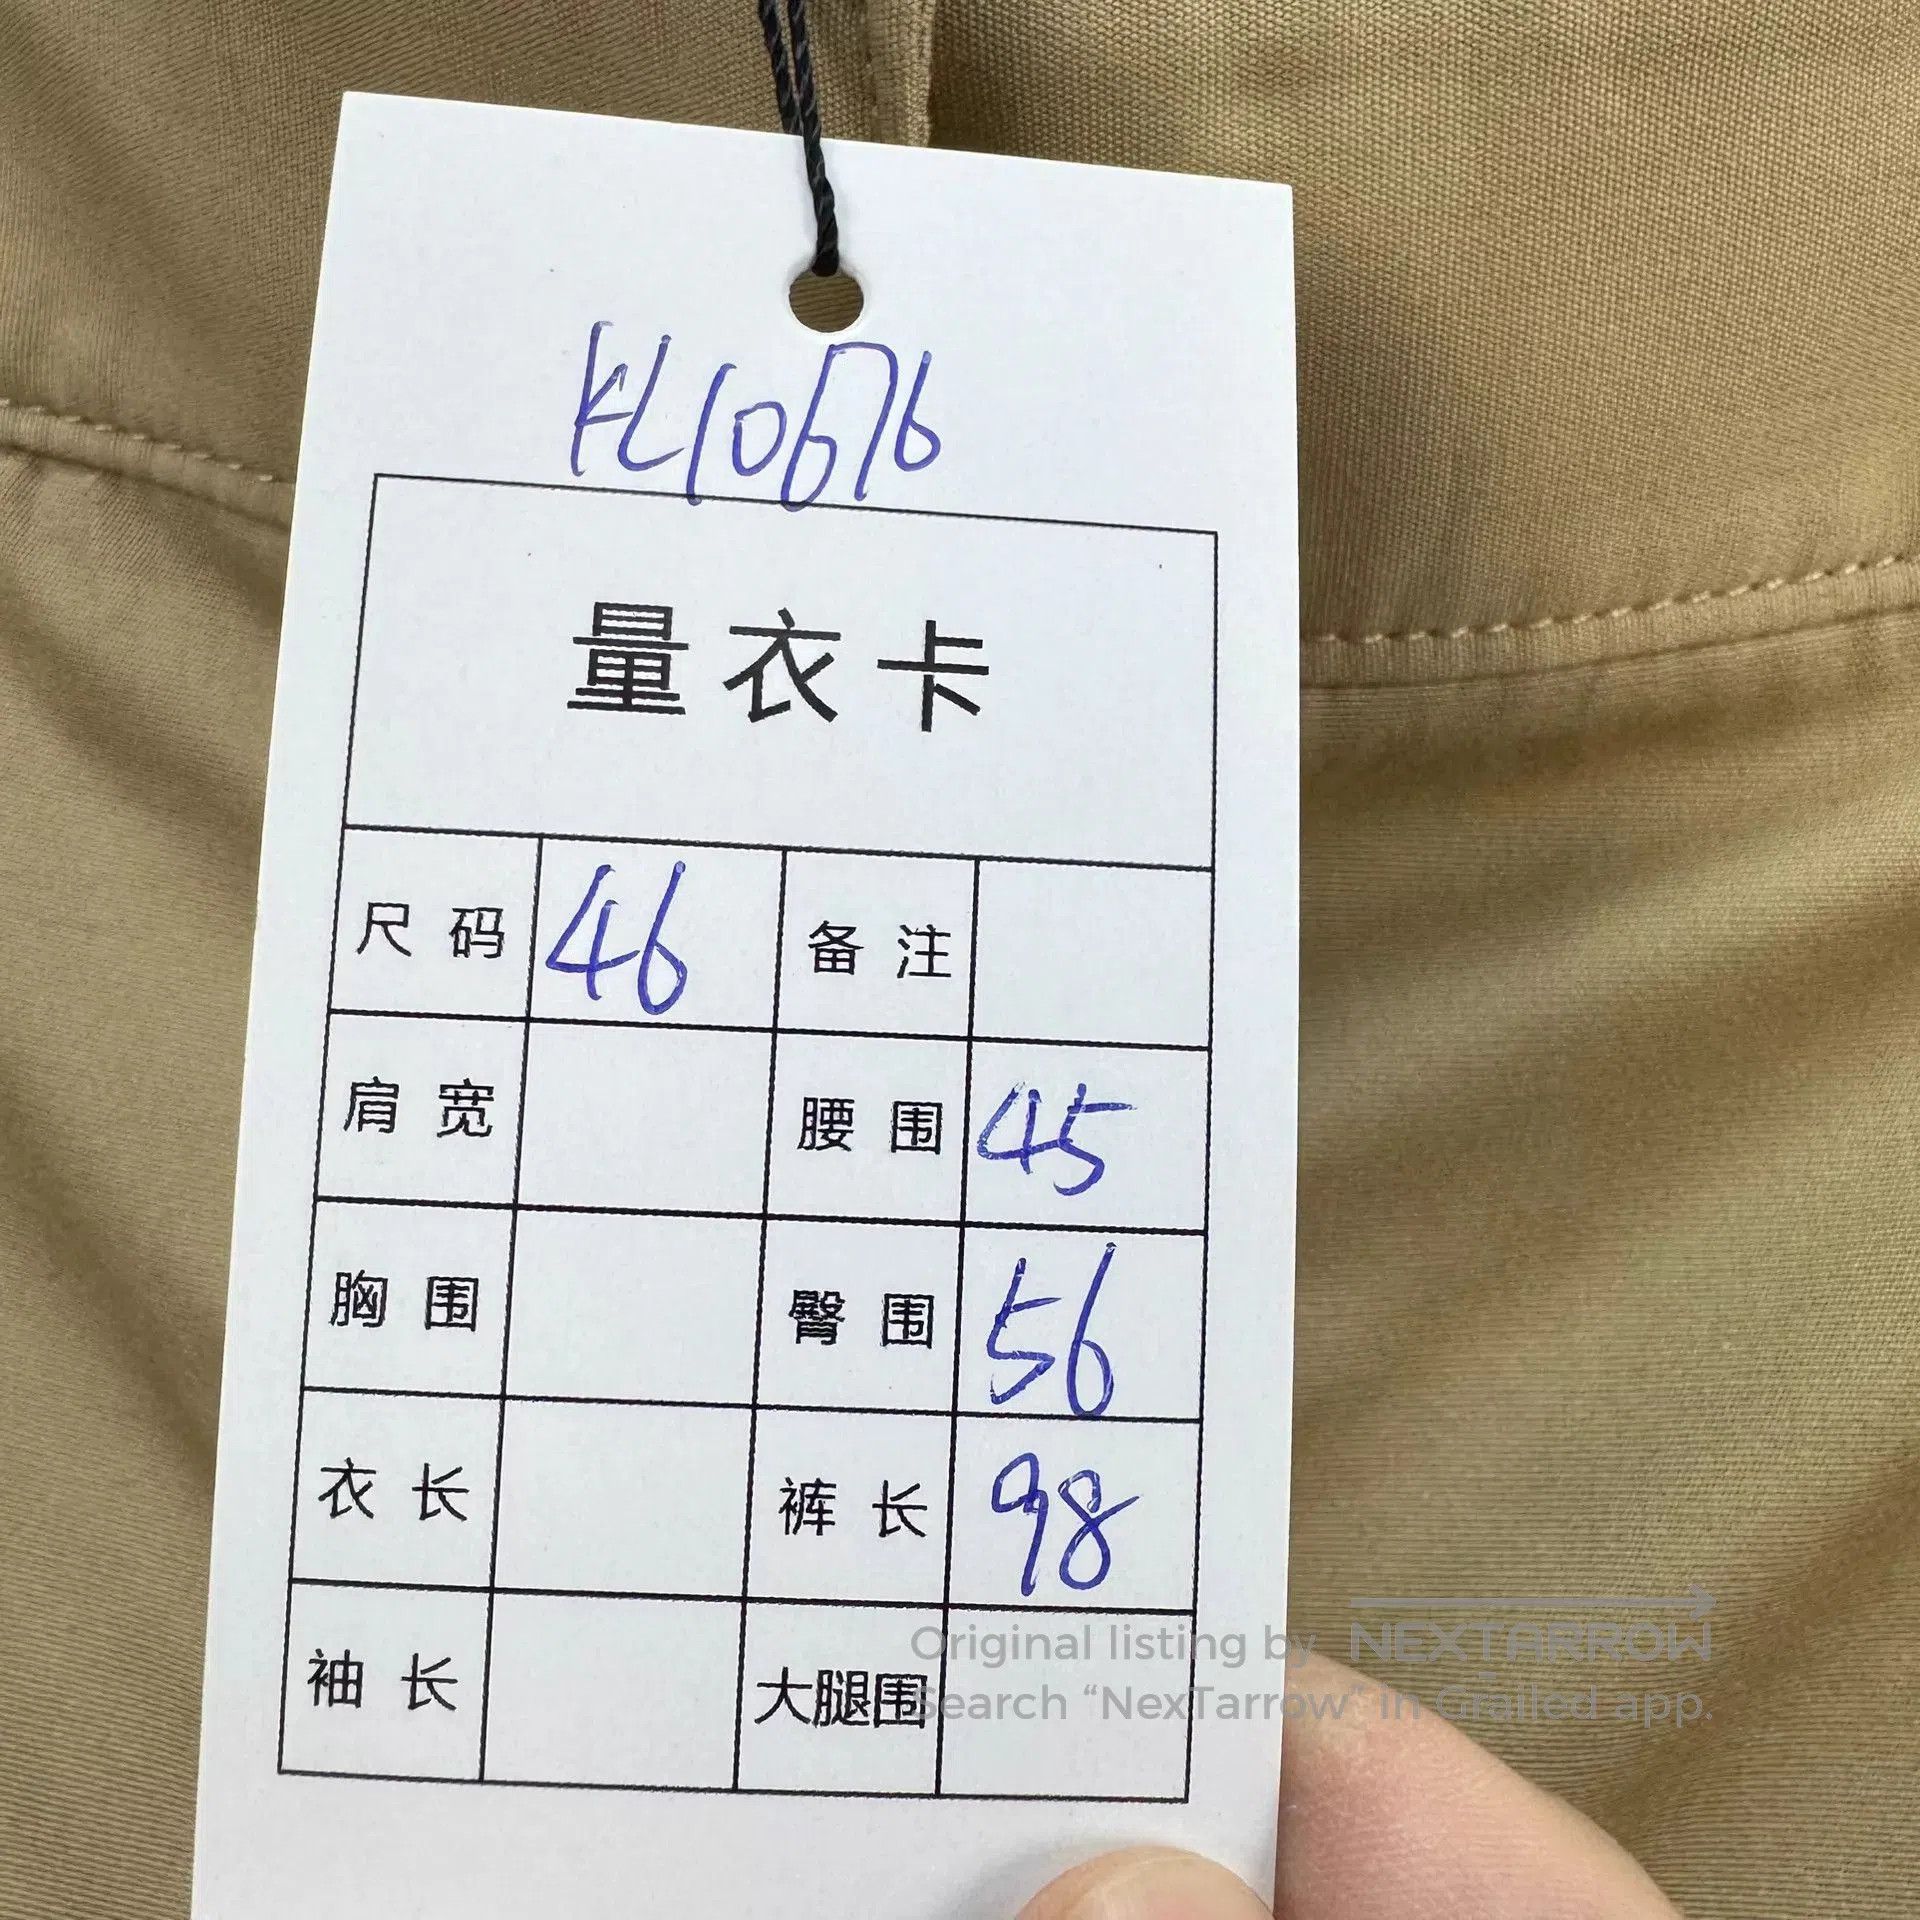 KL10676
量衣卡
尺码 46 备注
肩宽 腰围 45
胸围 臀围 56
衣长 裤长 98
袖长 大腿围
Original listing by NEXTARROW
Search “NexTarrow” in Grailed app.